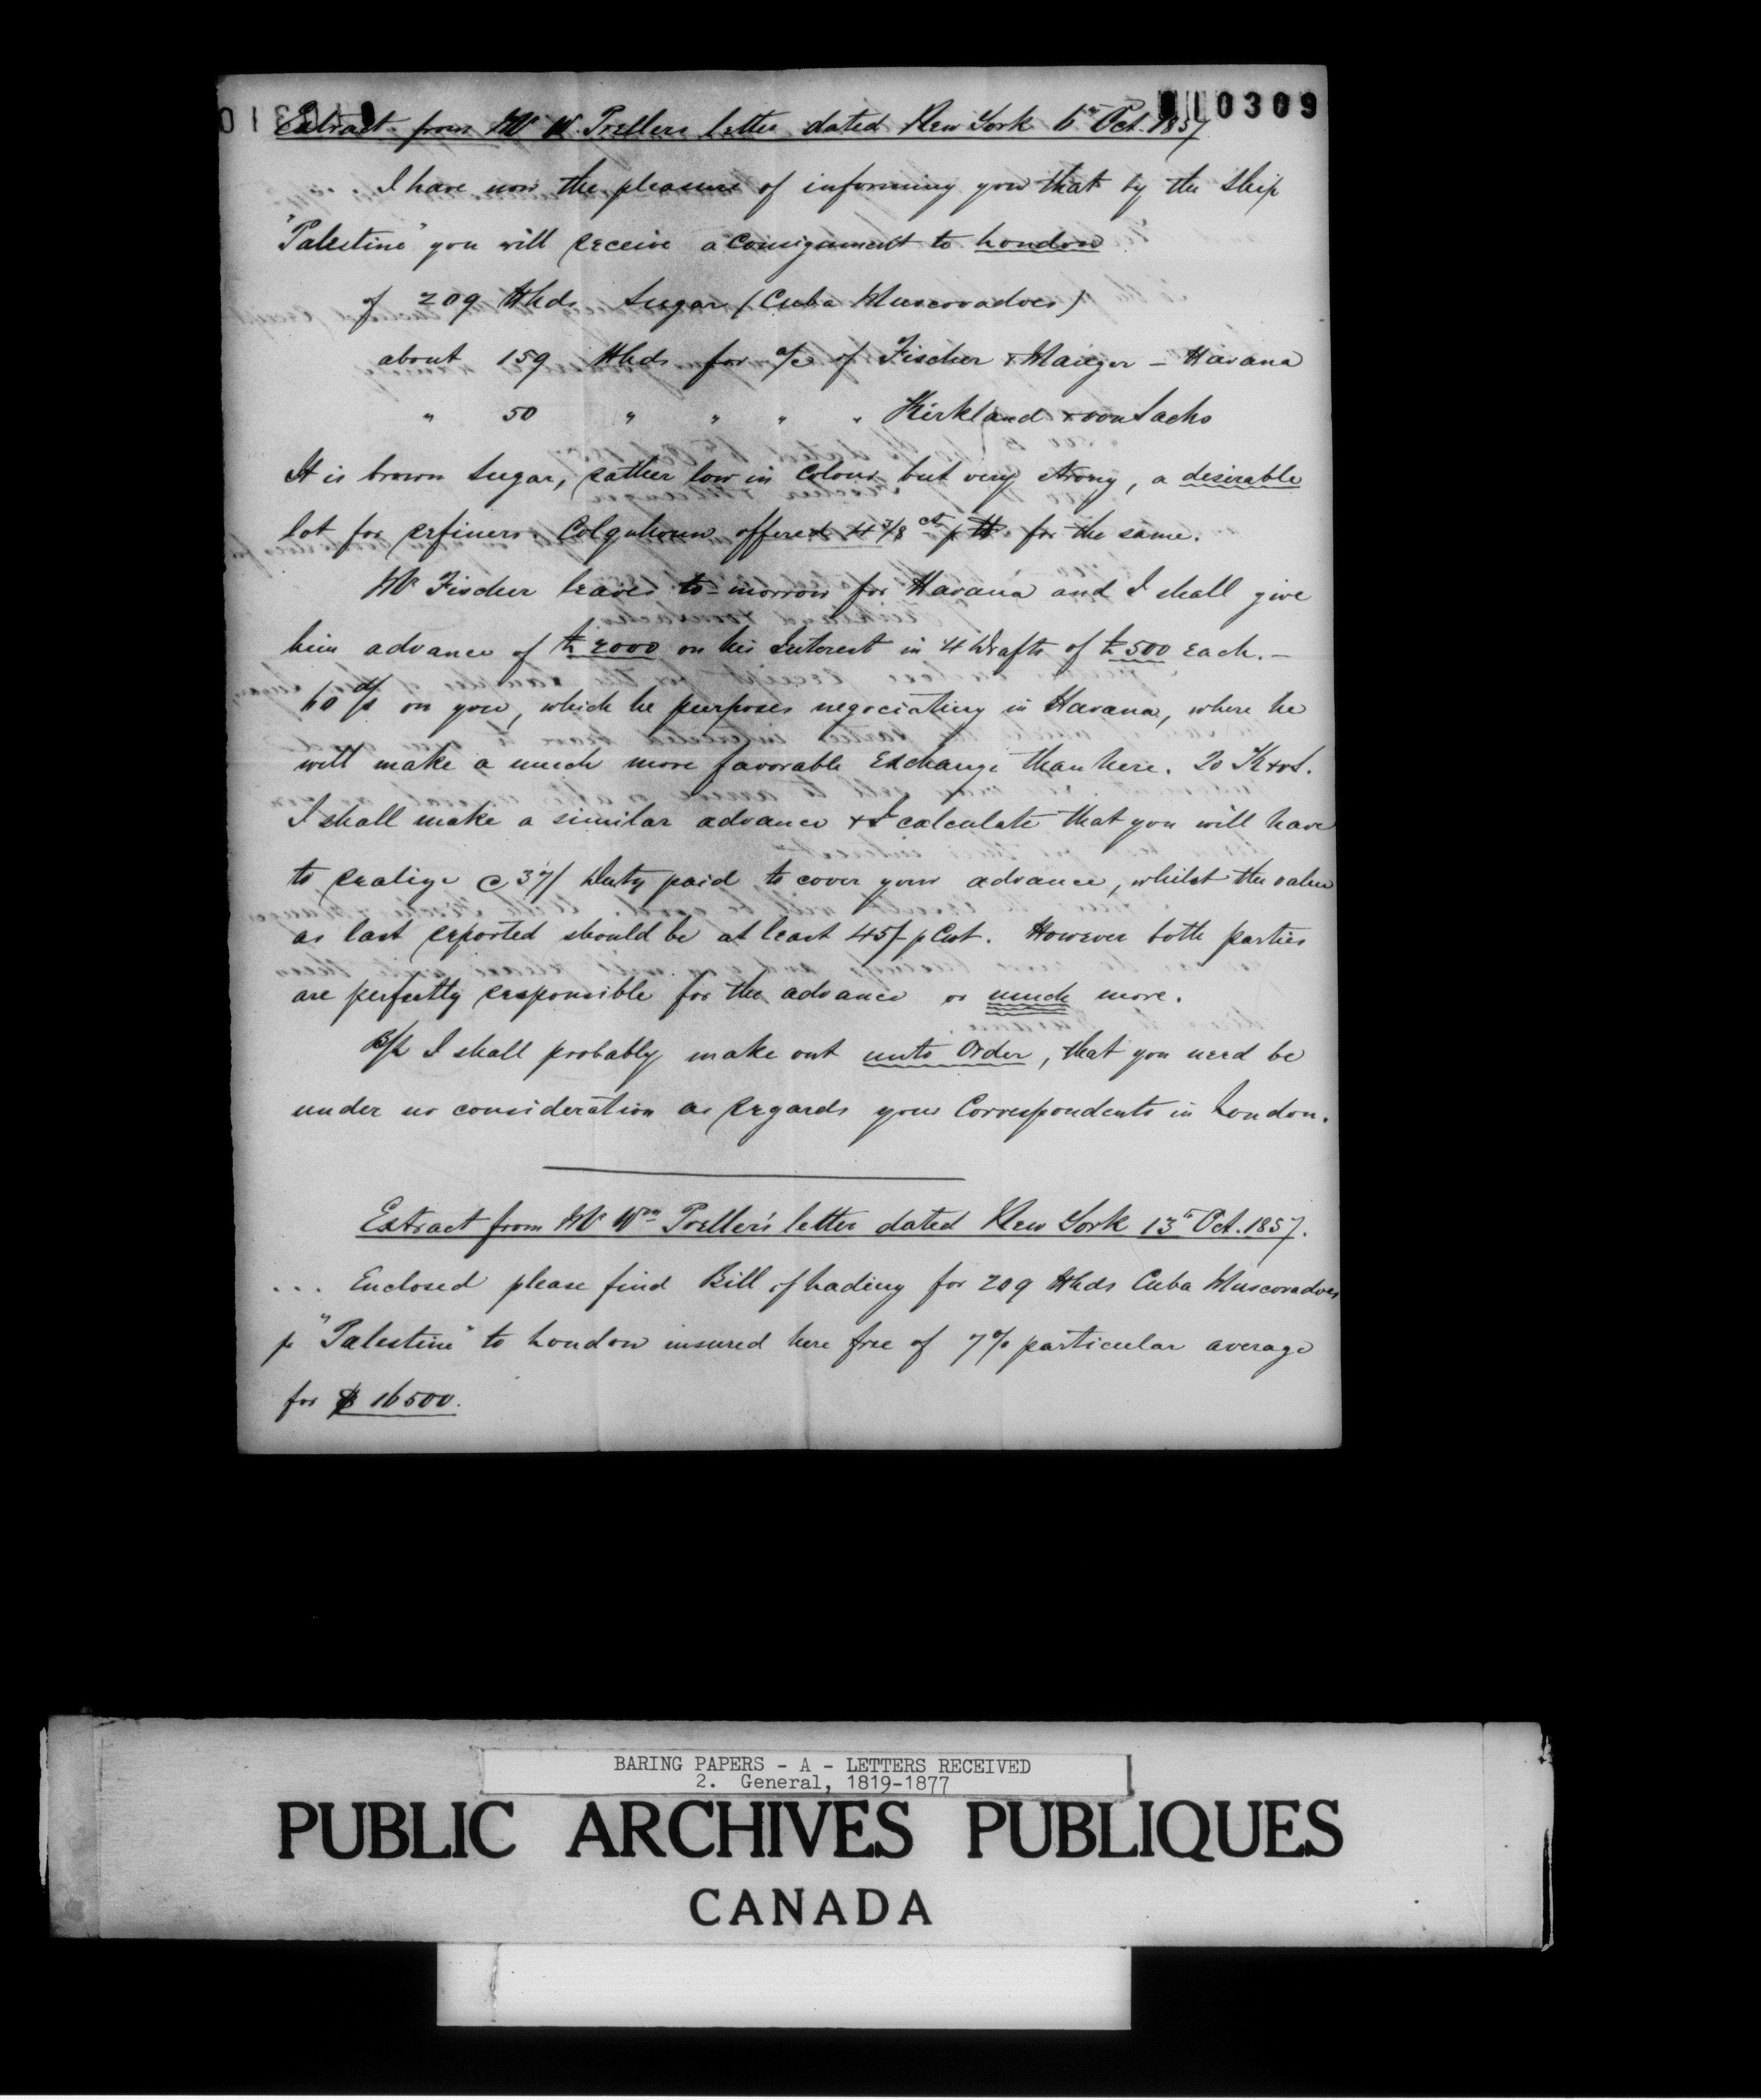 010309
Extract from Mr W. Prellers letter dated New York 6th Oct. 1857
... I have now the pleasure of informing you that by the Ship
"Palestine" you will receive a Consignment to London
of 209 Hhds Sugar (Cuba Muscovadoes)
about 159 Hhds for a/c of Fischer & Manger - Havana
" 50 " " " " Kirkland & von Sachs
It is brown Sugar, rather low in Colour but very strong, a desirable
lot for refiners. Colquhoun offered 4 3/8 ct p lb for the same.
Mr Fischer leaves to-morrow for Havana and I shall give
him advance of £ 2000 on his Interest in 4 Drafts of £ 500 each. -
60 d/s on you, which he purposes negociating in Havana, where he
will make a much more favorable Exchange than here. To K & v S.
I shall make a similar advance & I calculate that you will have
to realize c 37/ Duty paid to cover your advance, whilst the value
as last reported should be at least 45/- p Cwt. However both parties
are perfectly responsible for the advance or much more.
B/L I shall probably make out unto Order, that you need be
under no consideration as regards your Correspondents in London.
Extract from Mr Wm Preller's letter dated New York 13th Oct. 1857.
... Enclosed please find Bill of Lading for 209 Hhds Cuba Muscovadoes
p "Palestine" to London insured here free of 7% particular average
for $ 16500.
BARING PAPERS - A - LETTERS RECEIVED
2. General, 1819-1877
PUBLIC ARCHIVES PUBLIQUES
CANADA